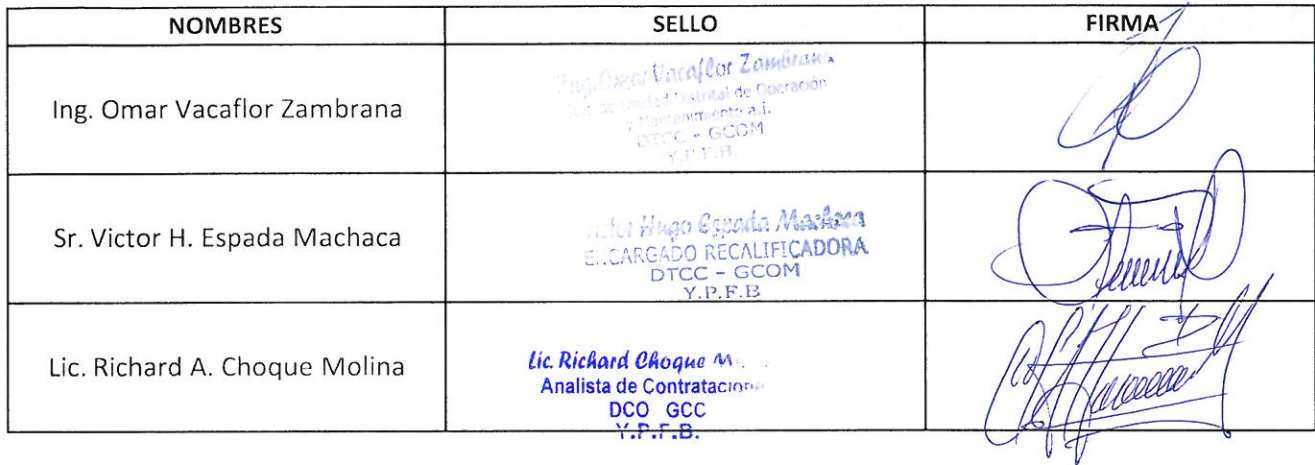 NOMBRES SELLO FIRMA
Ing. Omar Vacaflor Zambrana
Ing. Omar Vacaflor Zambrana
Unidad Distrital de Operación
y Mantenimiento a.i.
DTCC - GCOM
Y.P.F.B.
Sr. Victor H. Espada Machaca
Hugo Espada Machaca
RECALIFICADORA
DTCC - GCOM
Y.P.F.B
Lic. Richard A. Choque Molina
Lic. Richard Choque M
Analista de
DCO GCC
Y.P.F.B.